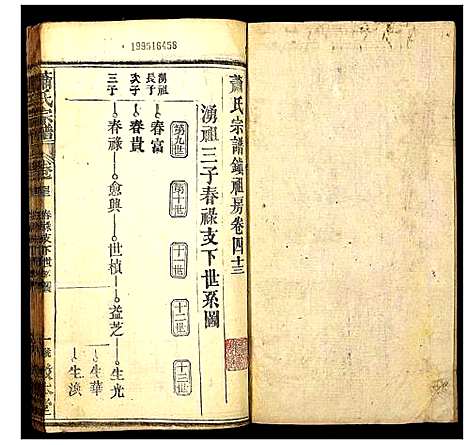 199516458
蕭氏宗譜鎮祖房卷四十三
湧祖三子春祿支下世系圖
第九世
第十世
十一世
十二世
十三世
湧祖
長子 春富
次子 春貴
三子 春祿 愈興 世楨 益芝 生光
生華
生渙
蕭氏宗譜
春祿支下世系圖